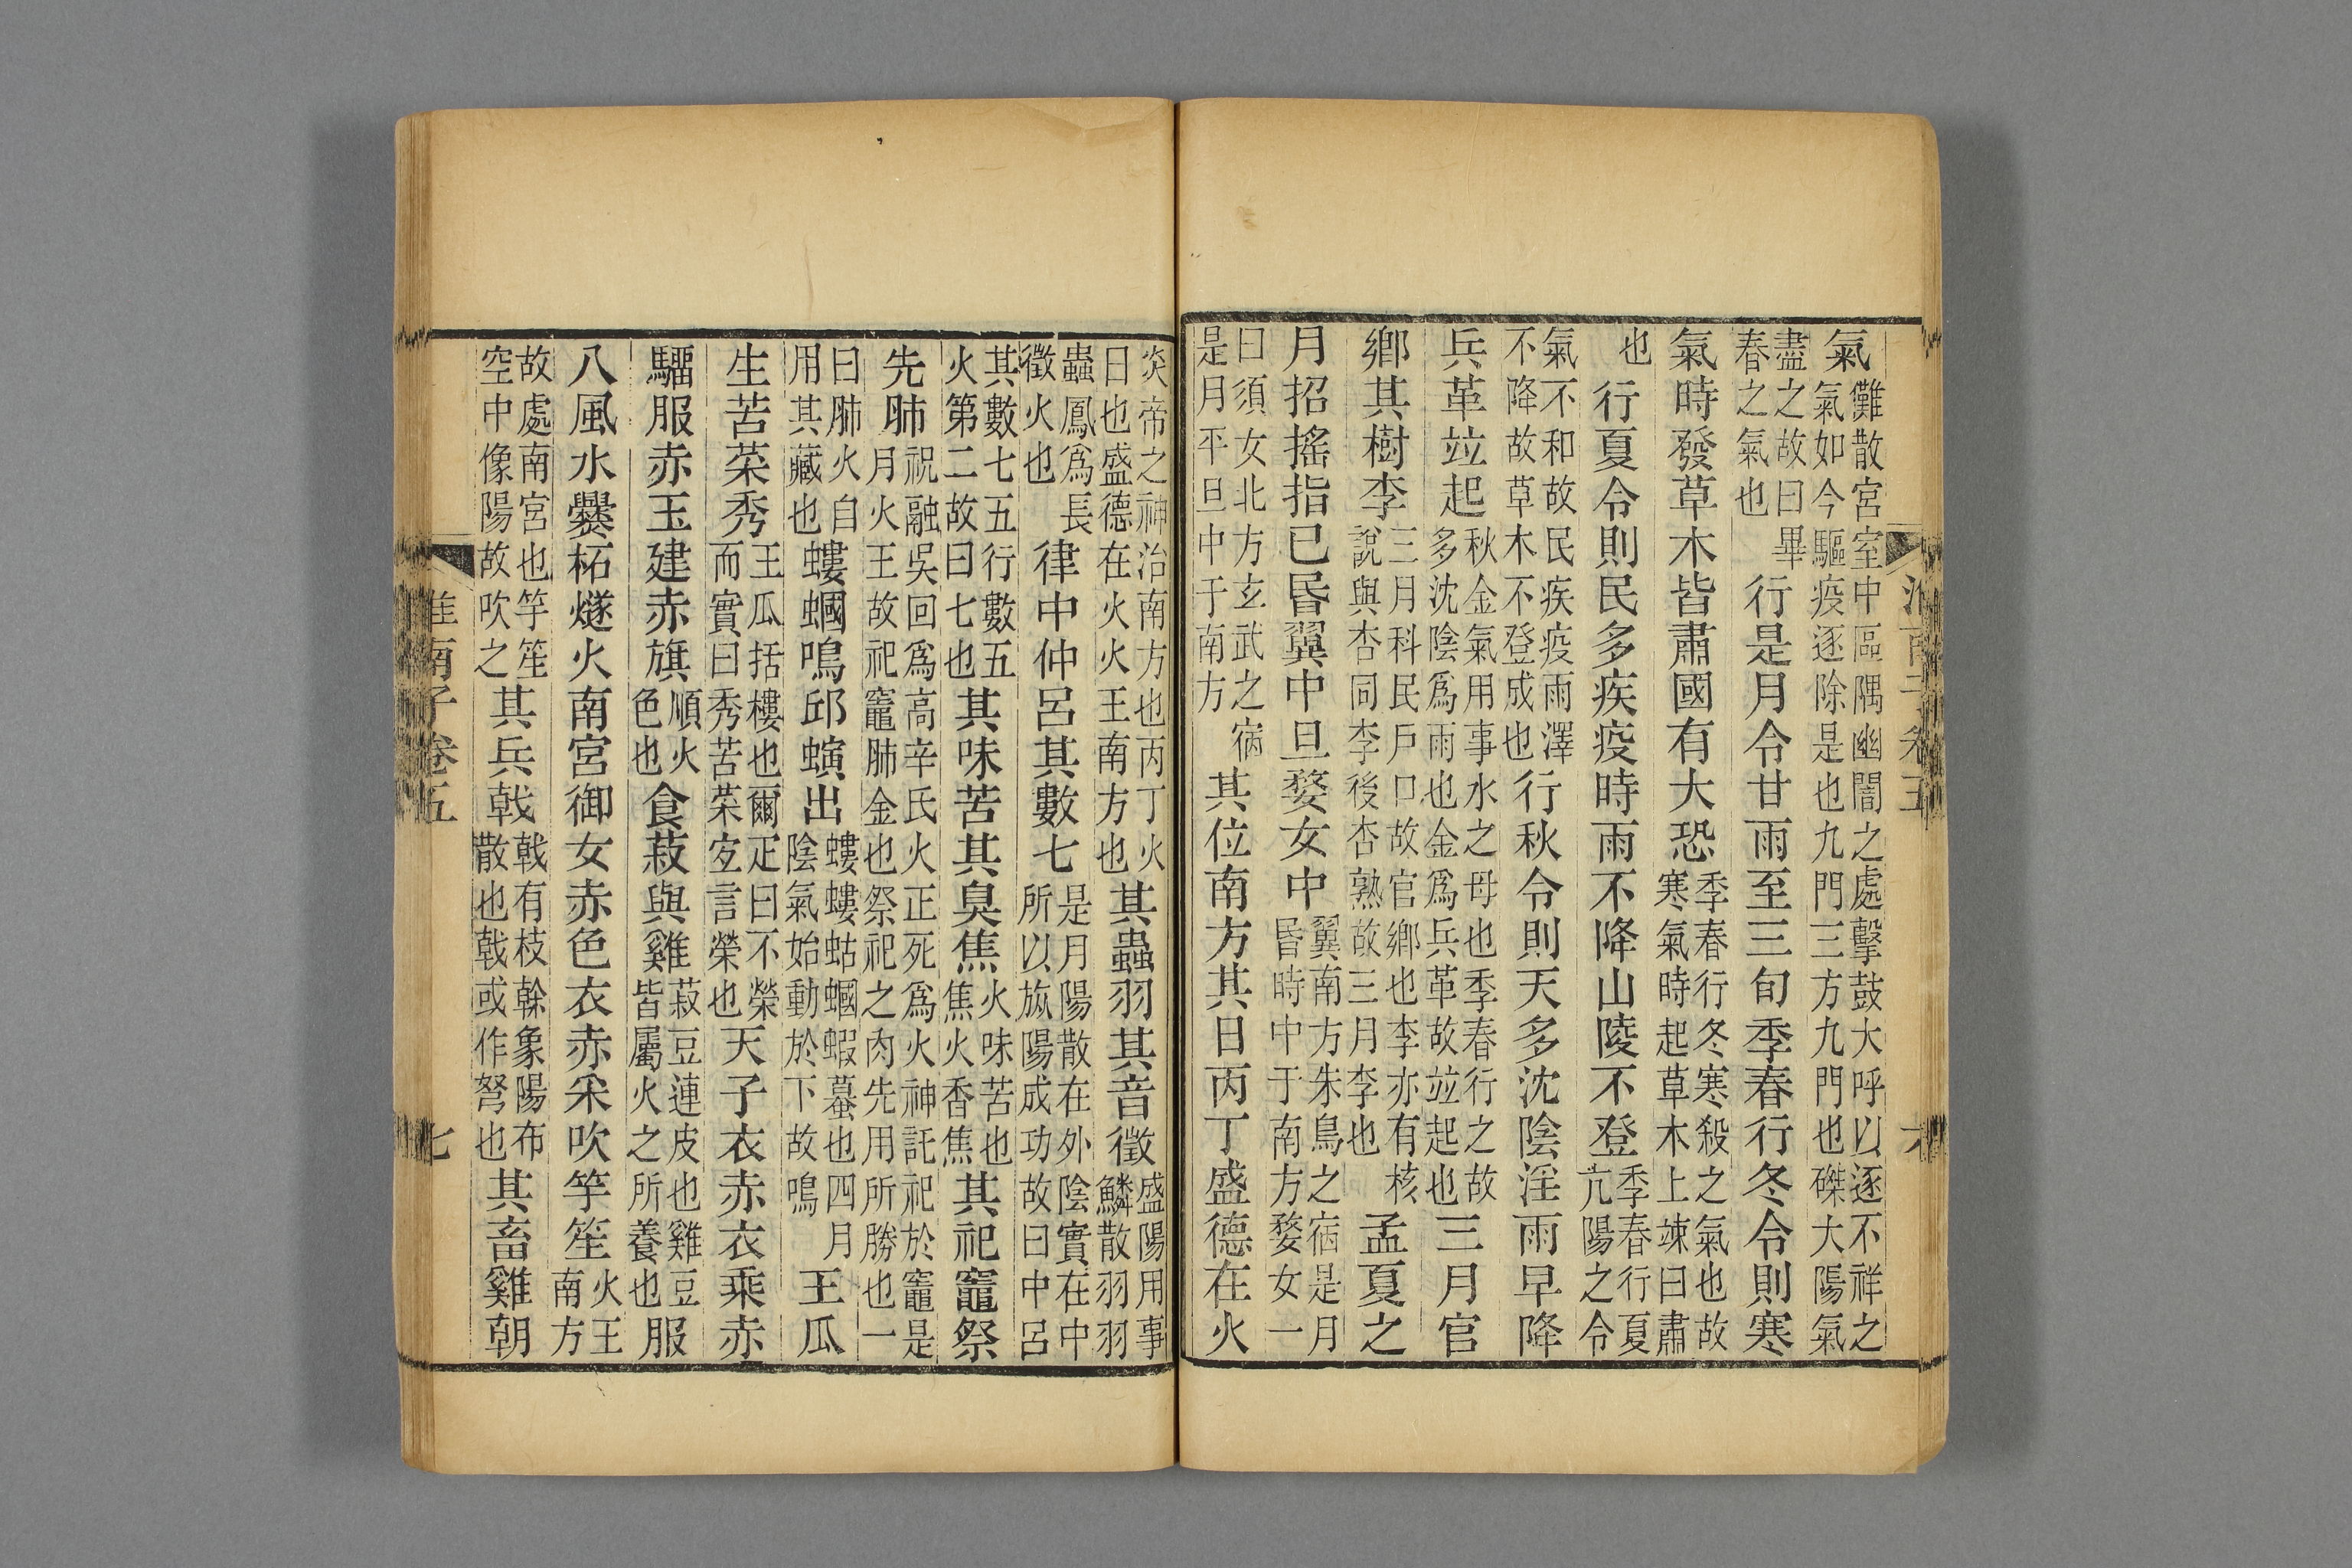 淮南子卷五 六
氣儺散宮室中區隅幽闇之處擊鼓大呼以逐不祥之氣如今驅疫逐除是也九門三方九門也磔大陽氣
盡之故曰畢春之氣也行是月令甘雨至三旬季春行冬令則寒
氣時發草木皆肅國有大恐季春行冬寒殺之氣也故寒氣時起草木上竦曰肅
也行夏令則民多疾疫時雨不降山陵不登季春行夏亢陽之令
氣不和故民疾疫雨澤不降故草木不登成也行秋令則天多沈陰淫雨早降
兵革竝起秋金氣用事水之母也季春行之故多沈陰爲雨也金爲兵革故竝起也三月官
鄉其樹李三月科民戶口故官鄉也李亦有核說與杏同李後杏熟故三月李也孟夏之
月招搖指巳昏翼中旦婺女中翼南方朱鳥之宿是月昏時中于南方婺女一
曰須女北方玄武之宿是月平旦中于南方其位南方其日丙丁盛德在火
炎帝之神治南方也丙丁火日也盛德在火火王南方也其蟲羽其音徵盛陽用事鱗散羽羽
蟲鳳爲長徵火也律中仲呂其數七是月陽散在外陰實在中所以旅陽成功故曰中呂
其數七五行數五火第二故曰七也其味苦其臭焦火味苦也焦火香焦其祀竈祭
先肺祝融吳回爲高辛氏火正死爲火神託祀於竈是月火王故祀竈肺金也祭祀之肉先用所勝也一
曰肺火自用其藏也螻蟈鳴邱螾出螻螻蛄蟈蝦蟇也四月陰氣始動於下故鳴王瓜
生苦菜秀王瓜括樓也爾疋曰不榮而實曰秀苦菜宐言榮也天子衣赤衣乘赤
騮服赤玉建赤旗順火色也食菽與雞菽豆連皮也雞豆皆屬火之所養也服
八風水爨柘燧火南宮御女赤色衣赤采吹竽笙火王南方
故處南宮也竽笙空中像陽故吹之其兵戟戟有枝榦象陽布散也戟或作弩也其畜雞朝
淮南子卷五 七